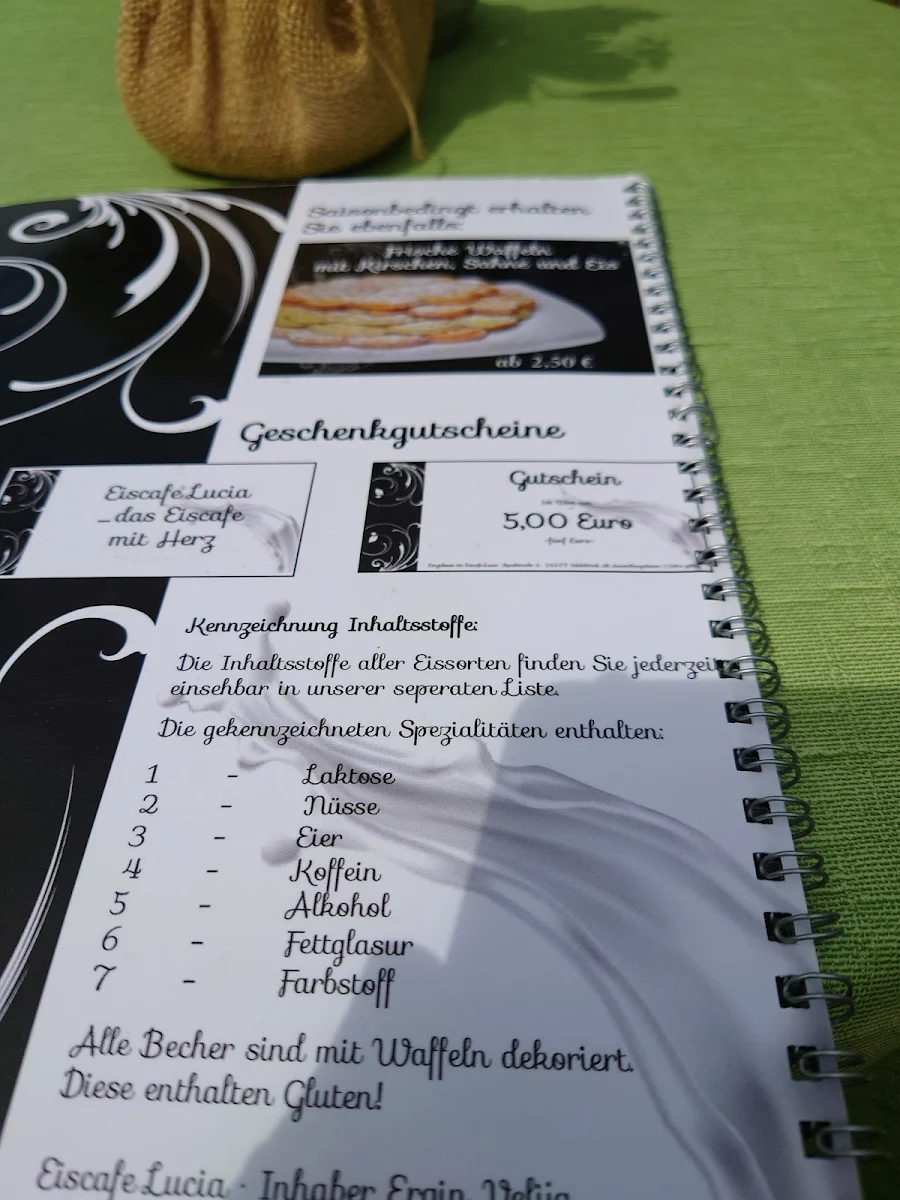 Saisonbedingt erhalten
Sie ebenfalls:
Frische Waffeln
mit Kirschen, Sahne und Eis
ab 2,50 €
Geschenkgutscheine
Eiscafe Lucia
... das Eiscafe
mit Herz
Gutschein
5,00 Euro
-fünf Euro-
Kennzeichnung Inhaltsstoffe:
Die Inhaltsstoffe aller Eissorten finden Sie jederzeit
einsehbar in unserer seperaten Liste.
Die gekennzeichneten Spezialitäten enthalten:
1 - Laktose
2 - Nüsse
3 - Eier
4 - Koffein
5 - Alkohol
6 - Fettglasur
7 - Farbstoff
Alle Becher sind mit Waffeln dekoriert.
Diese enthalten Gluten!
Eiscafe Lucia · Inhaber Ergin